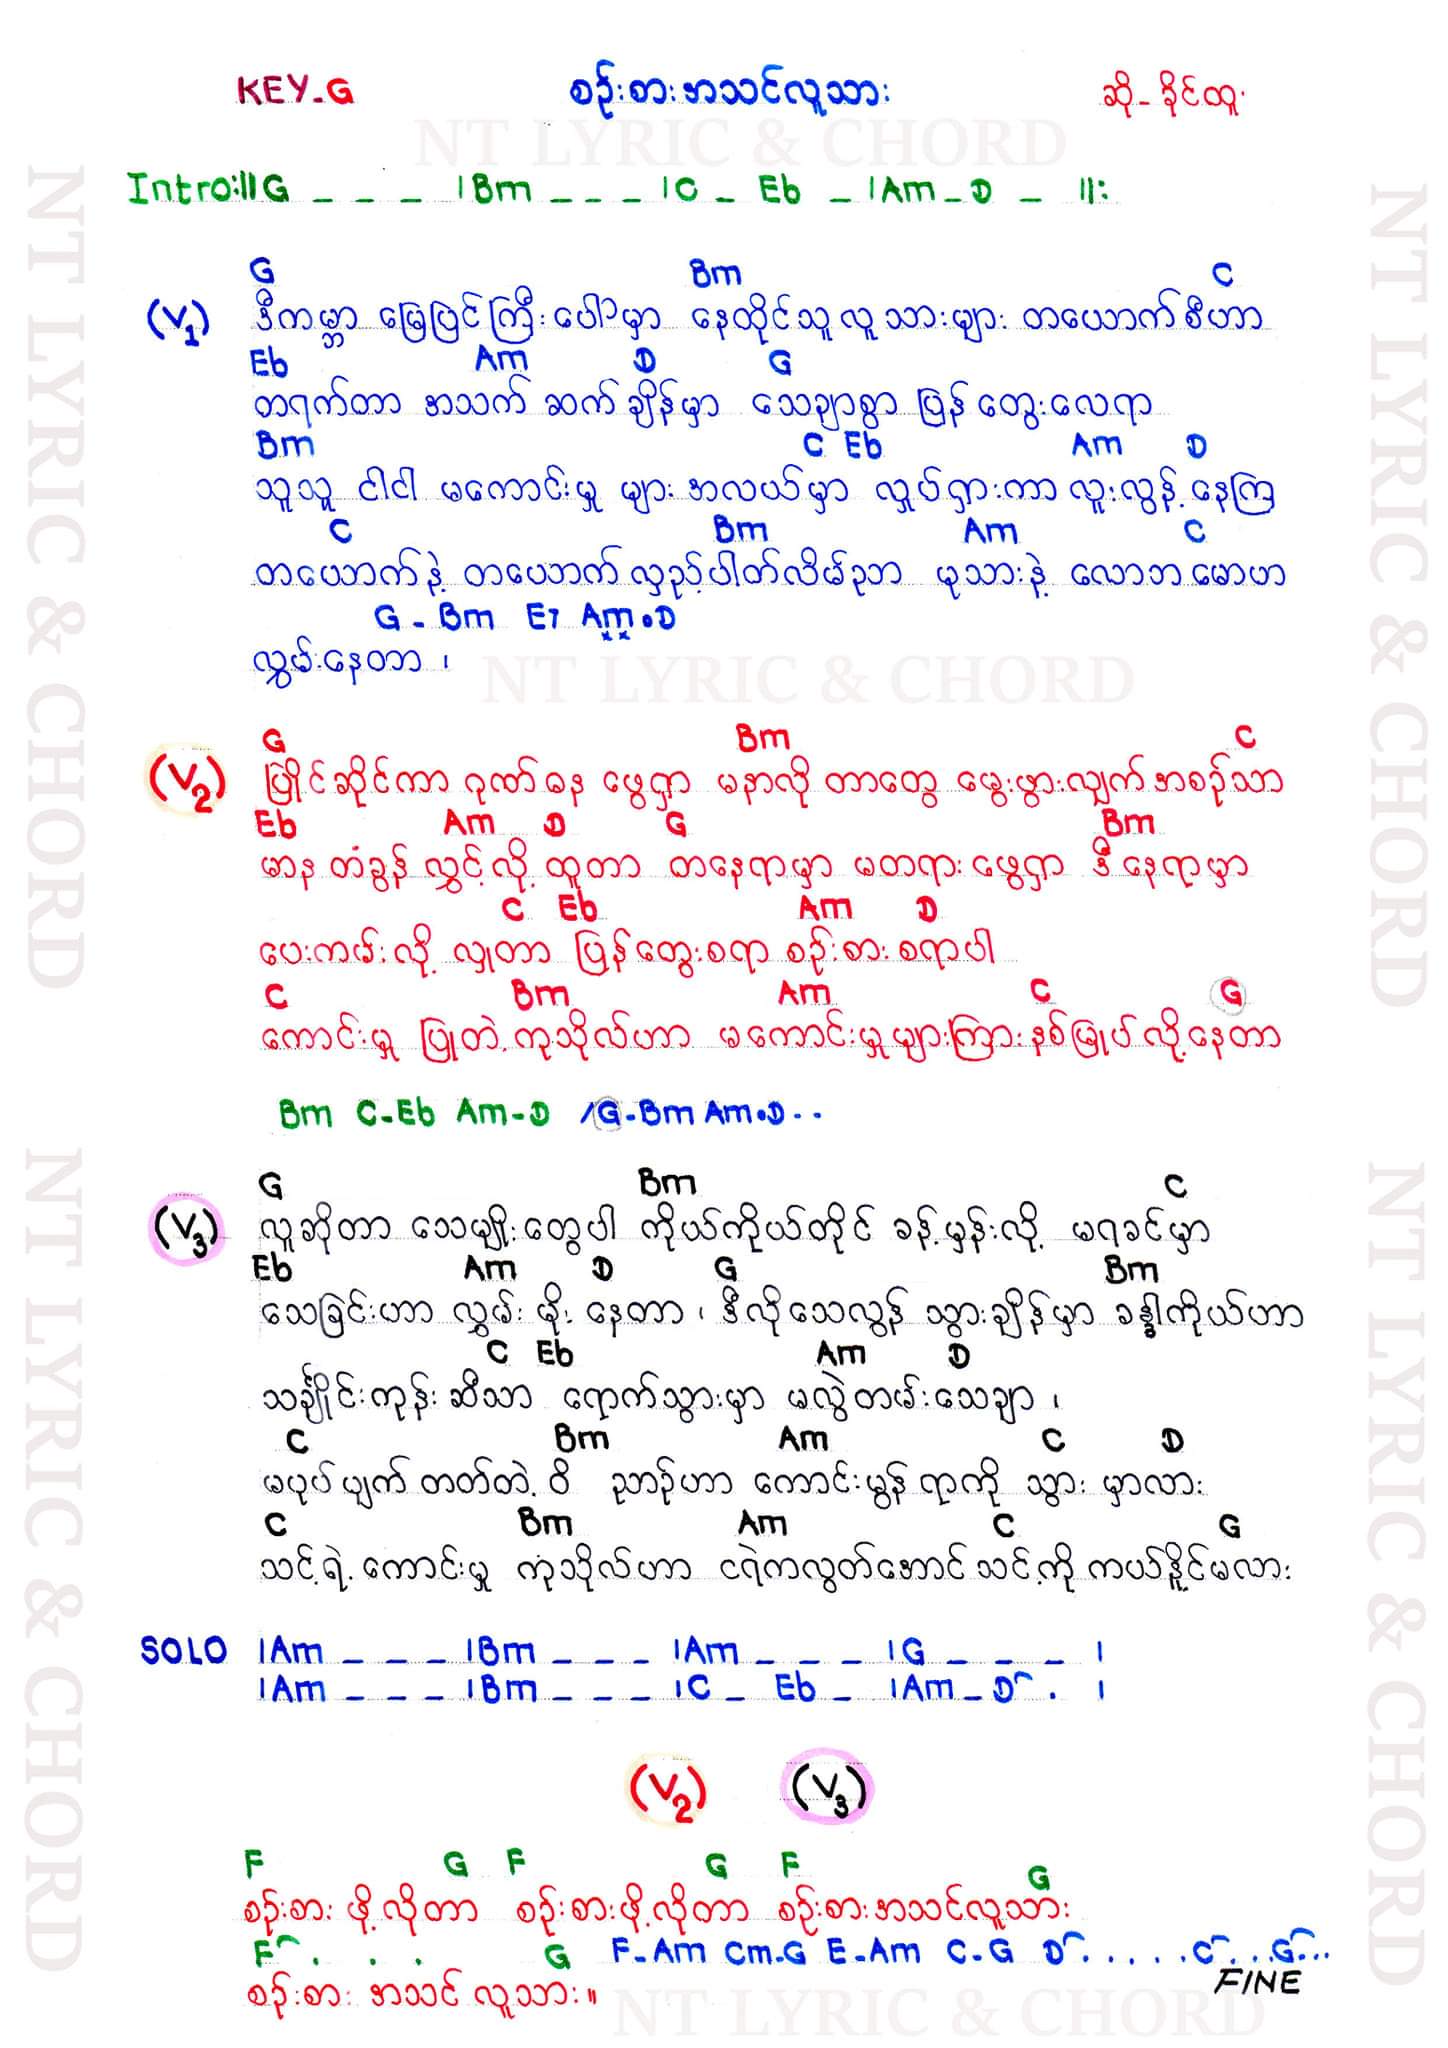 KEY-G စဉ်းစားအသင်လူသား ဆို - ခိုင်ထူး
NT LYRIC & CHORD
Intro:||G _ _ _ |Bm _ _ _ |C _ Eb _ |Am _ D _ ||:
G Bm C
(V1) ဒီကမ္ဘာ မြေပြင်ကြီးပေါ်မှာ နေထိုင်သူလူသားများ တယောက်စီဟာ
Eb Am D G
တရက်တာ အသက်ဆက်ချိန်မှာ သေချာစွာ ပြန်တွေးလေရာ
Bm C Eb Am D
သူသူ ငါငါ မကောင်းမှု များအလယ်မှာ လှုပ်ရှားကာ လူးလွန့်နေကြ
C Bm Am C
တယောက်နဲ့ တယောက်လှည့်ပါတ်လိမ်ညာ မုသားနဲ့ လောဘမောဟ
G - Bm E7 Am.D
xx
လွှမ်းနေတာ ၊
NT LYRIC & CHORD
G Bm C
(V2) ပြိုင်ဆိုင်ကာ ဂုဏ်ဓန ဖွေရှာ မနာလိုတာတွေ မွေးဖွားလျှက်အစဉ်သာ
Eb Am D G Bm
မာန တံခွန် လွှင့်လို့ ထူတာ တနေရာမှာ မတရားဖွေရှာ ဒီနေရာမှာ
C Eb Am D
ပေးကမ်းလို့ လှူတာ ပြန်တွေးစရာ စဉ်းစားစရာပါ
C Bm Am C G
ကောင်းမှု ပြုတဲ့ ကုသိုလ်ဟာ မကောင်းမှုများကြားနစ်မြှုပ်လို့နေတာ
Bm C-Eb Am-D /G-Bm Am.D..
G Bm C
(V3) လူဆိုတာ သေမျိုးတွေပါ ကိုယ်ကိုယ်တိုင် ခန့်မှန်းလို့ မရခင်မှာ
Eb Am D G Bm
သေခြင်းဟာ လွှမ်းမိုးနေတာ ၊ ဒီလိုသေလွန် သွားချိန်မှာ ခန္ဓါကိုယ်ဟာ
C Eb Am D
သင်္ချိုင်းကုန်းဆီသာ ရောက်သွားမှာ မလွဲတမ်းသေချာ ၊
C Bm Am C D
မပုပ်ပျက်တတ်တဲ့ ဝိ ညာဉ်ဟာ ကောင်းမွန်ရာကို သွားမှာလား
C Bm Am C G
သင့်ရဲ့ကောင်းမှု ကုသိုလ်ဟာ ငရဲကလွတ်အောင်သင့်ကို ကယ်နိုင်မလား
SOLO |Am _ _ _ |Bm _ _ _ |Am _ _ _ |G _ _ _ |
|Am _ _ _ |Bm _ _ _ |C _ Eb _ |Am _ D . |
(V2) (V3)
F G F G F G
စဉ်းစားဖို့လိုတာ စဉ်းစားဖို့လိုတာ စဉ်းစားအသင်လူသား
F . . . G F-Am Cm-G E-Am C-G D.....C...G...
စဉ်းစား အသင်လူသား။ FINE
NT LYRIC & CHORD
NT LYRIC & CHORD
NT LYRIC & CHORD
NT LYRIC & CHORD
NT LYRIC & CHORD